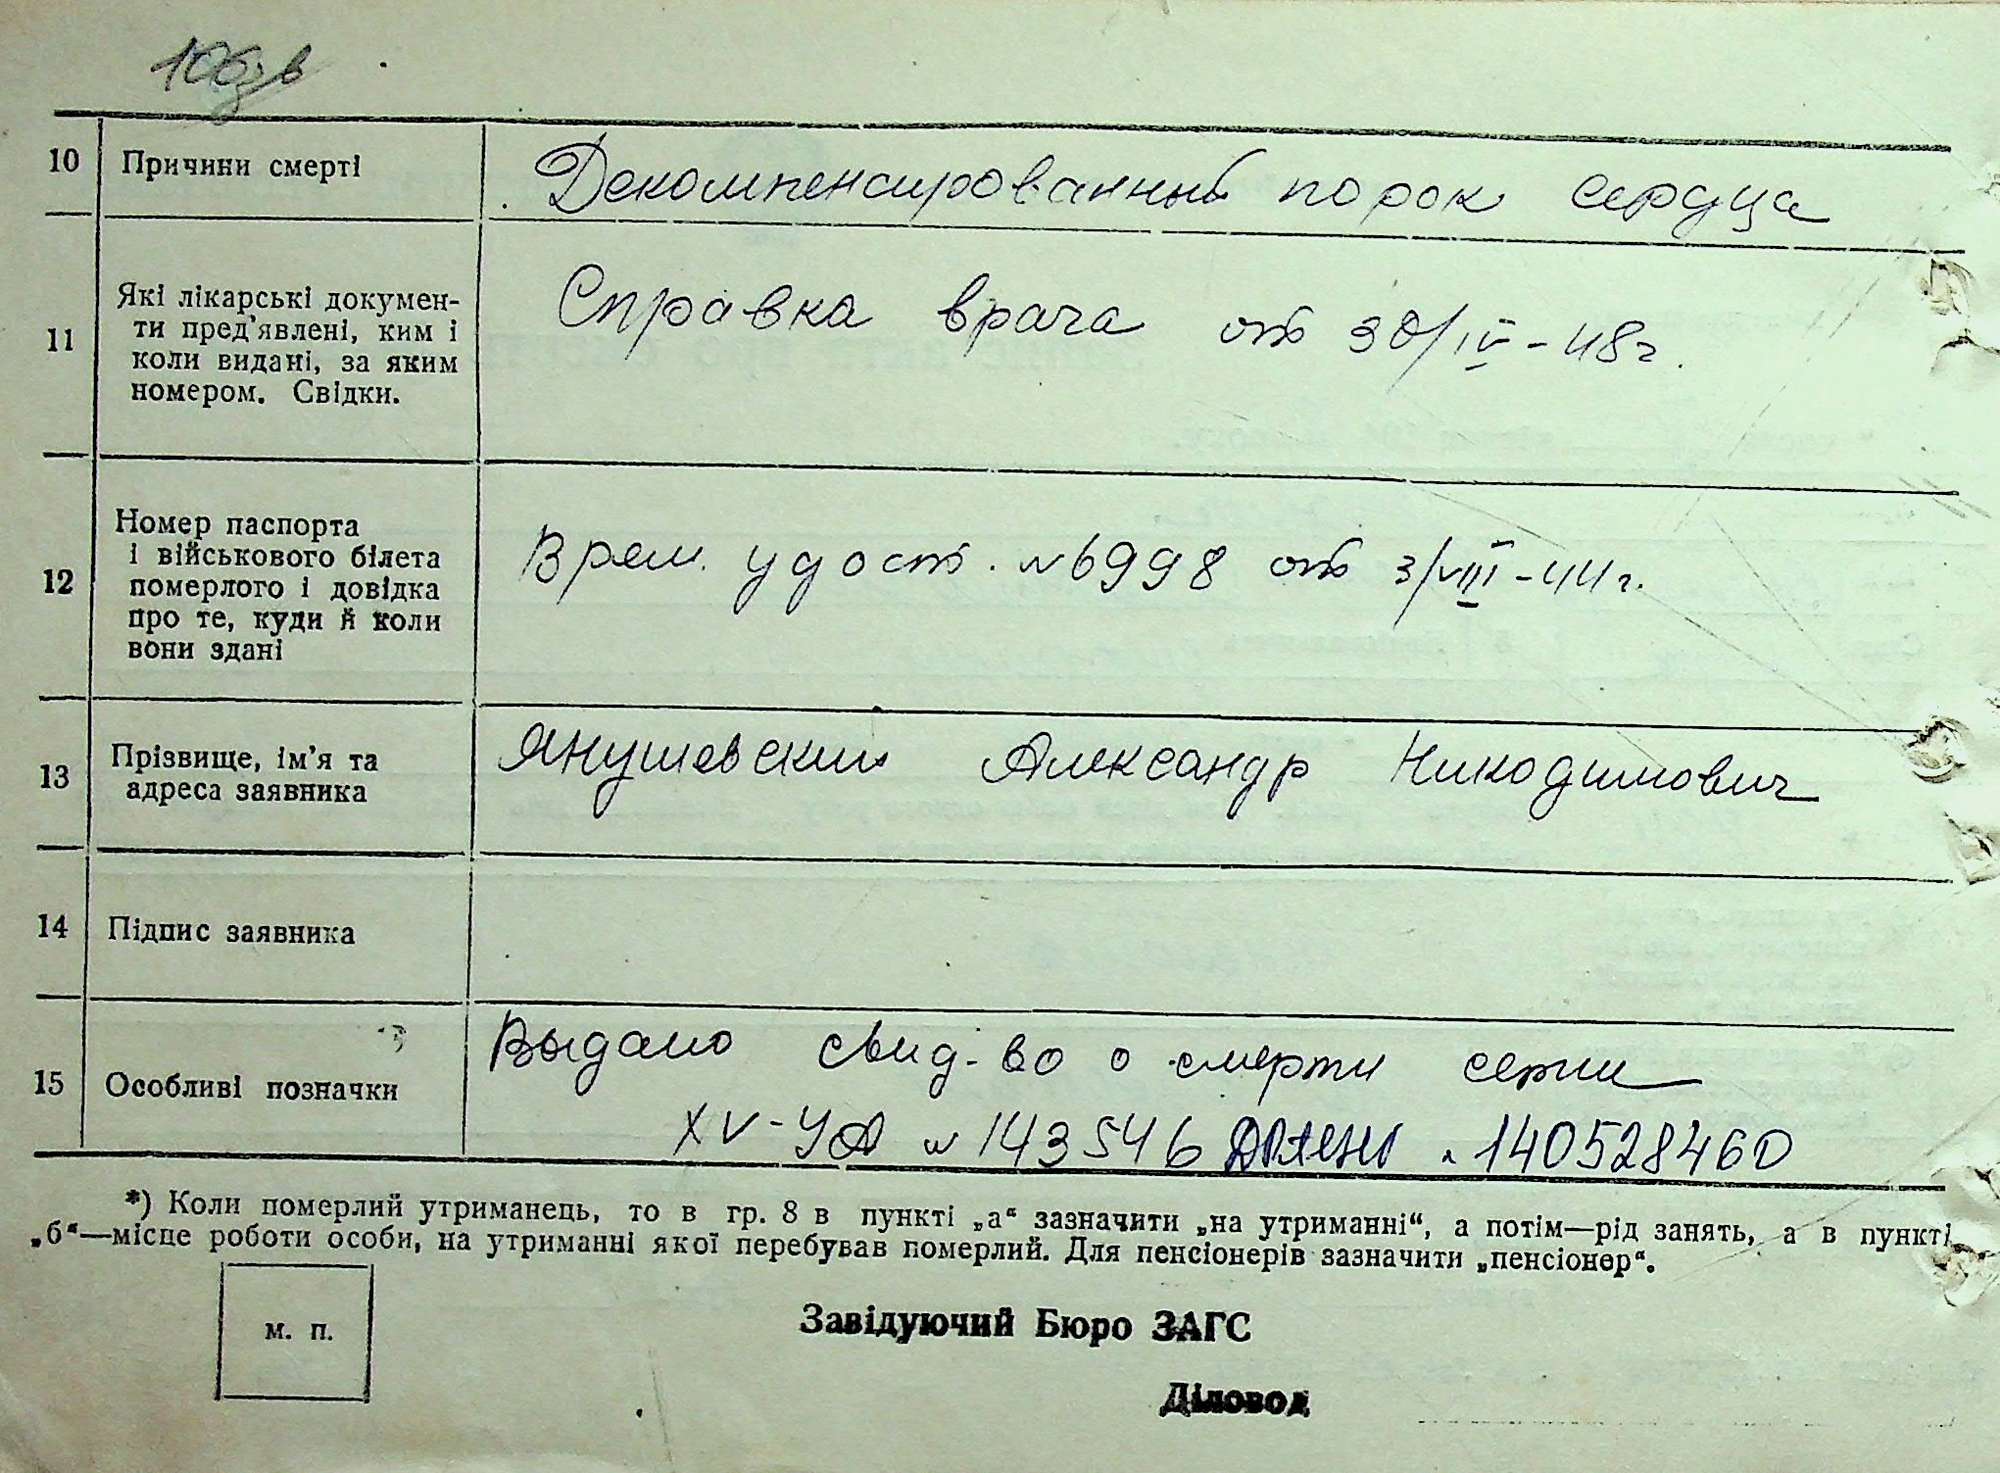 106зв
10 Причини смерті
Декомпенсированный порок сердца
11 Які лікарські докумен-
ти пред'явлені, ким і
коли видані, за яким
номером. Свідки.
Справка врача от 30/IV-48г.
12 Номер паспорта
і військового білета
померлого і довідка
про те, куди й коли
вони здані
Врем. удост. №6998 от 3/VIII-44г.
13 Прізвище, ім'я та
адреса заявника
Янушевский Александр Никодимович
14 Підпис заявника
15 Особливі позначки
Выдано свид-во о смерти серии
XV-УА № 143546 140528460
*) Коли померлий утриманець, то в гр. 8 в пункті „а“ зазначити „на утриманні“, а потім—рід занять, а в пункті
„б“—місце роботи особи, на утриманні якої перебував померлий. Для пенсіонерів зазначити „пенсіонер“.
м. п.
Завідуючий Бюро ЗАГС
Діловод